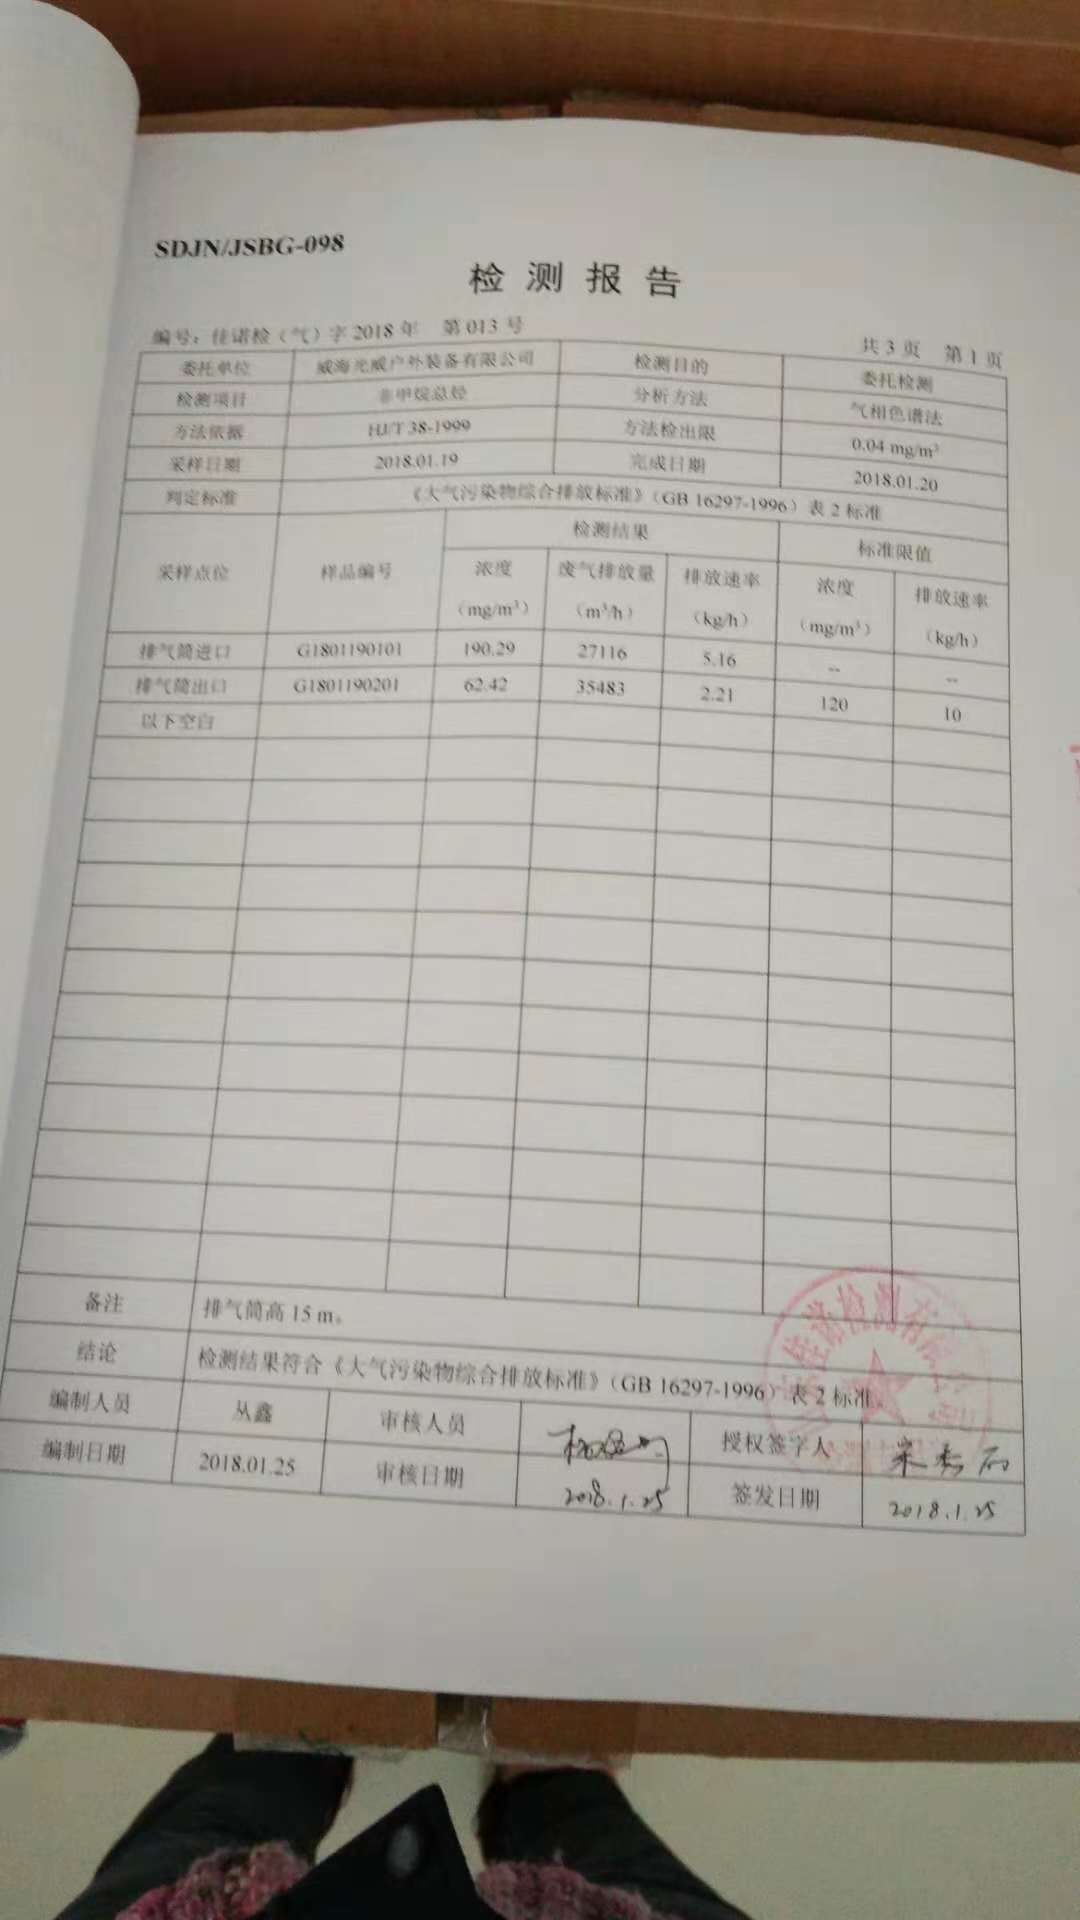 SDJN/JSBG-098
检测报告
编号：佳诺检（气）字2018年 第013号 共3页 第1页
委托单位 威海光威户外装备有限公司 检测目的 委托检测
检测项目 非甲烷总烃 分析方法 气相色谱法
方法依据 HJ/T 38-1999 方法检出限 0.04 mg/m³
采样日期 2018.01.19 完成日期 2018.01.20
判定标准 《大气污染物综合排放标准》（GB 16297-1996）表2标准
采样点位 样品编号 检测结果 标准限值
浓度 废气排放量 排放速率 浓度 排放速率
（mg/m³） （m³/h） （kg/h） （mg/m³） （kg/h）
排气筒进口 G1801190101 190.29 27116 5.16 -- --
排气筒出口 G1801190201 62.42 35483 2.21 120 10
以下空白
备注 排气筒高15 m。
结论 检测结果符合《大气污染物综合排放标准》（GB 16297-1996）表2标准。
编制人员 从鑫 审核人员 授权签字人
编制日期 2018.01.25 审核日期 2018.1.25 签发日期 2018.1.25
佳诺检测有限公司